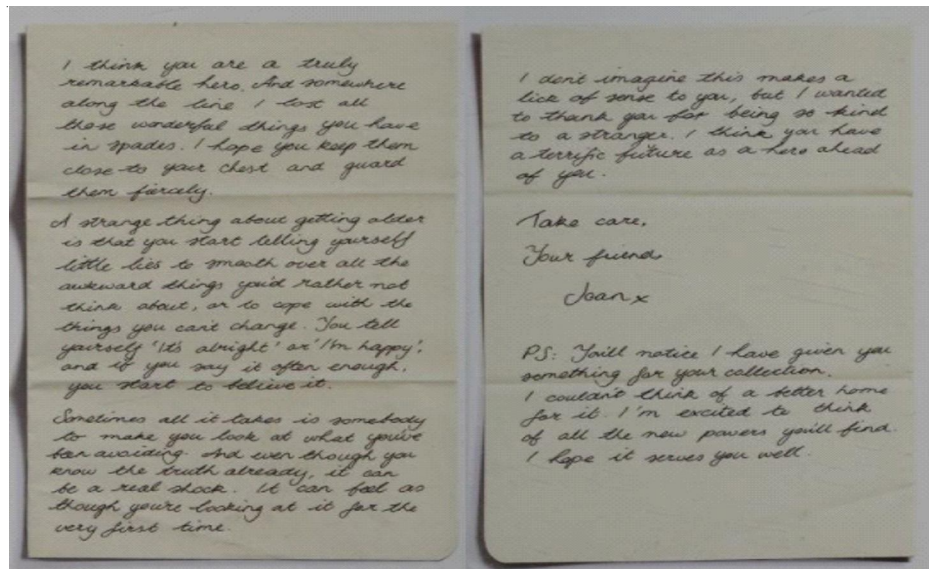 I think you are a truly
remarkable hero. And somewhere
along the line I lost all
those wonderful things you have
in spades. I hope you keep them
close to your chest and guard
them fiercely.
A strange thing about getting older
is that you start telling yourself
little lies to smooth over all the
awkward things you'd rather not
think about, or to cope with the
things you can't change. You tell
yourself 'It's alright' or 'I'm happy',
and if you say it often enough,
you start to believe it.
Sometimes all it takes is somebody
to make you look at what you've
been avoiding. And even though you
know the truth already, it can
be a real shock. It can feel as
though you're looking at it for the
very first time.
I don't imagine this makes a
lick of sense to you, but I wanted
to thank you for being so kind
to a stranger. I think you have
a terrific future as a hero ahead
of you.
Take care,
Your friend,
Joan x
PS: You'll notice I have given you
something for your collection.
I couldn't think of a better home
for it. I'm excited to think
of all the new powers you'll find.
I hope it serves you well.